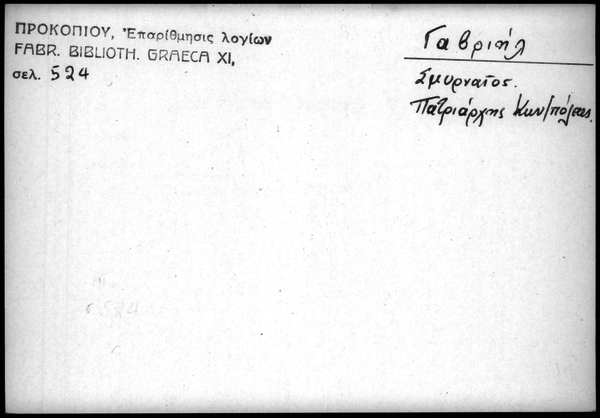 ΠΡΟΚΟΠΙΟΥ, Ἐπαρίθμησις λογίων
FABR. BIBLIOTH. GRAECA XI,
σελ. 524
Γαβριήλ
Σμυρναῖος.
Πατριάρχης Κων/πόλεως.
σ. 524